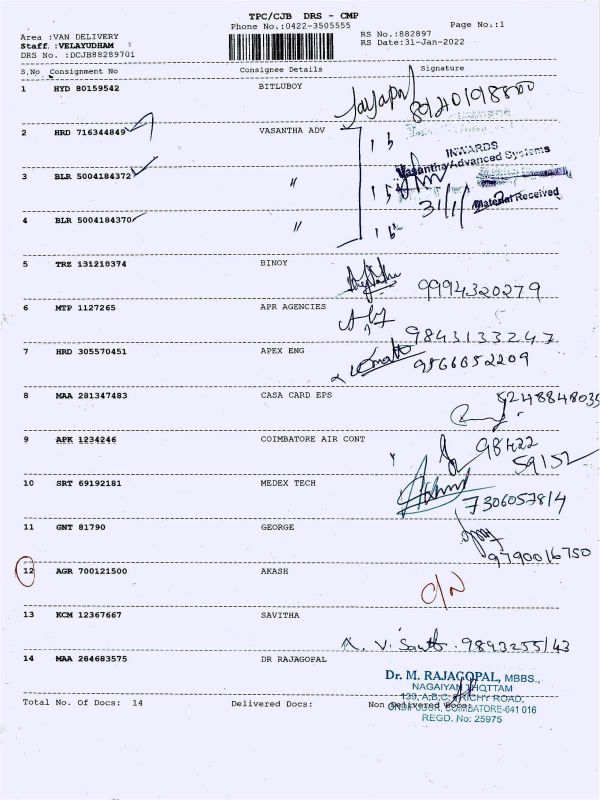 TPC/CJB DRS - CMP
Phone No.:0422-3505555 Page No.:1
Area :VAN DELIVERY RS No.:882897
Staff :VELAYUDHAM RS Date:31-Jan-2022
DRS No. :DCJB88289701
S.No Consignment No Consignee Details Signature
1 HYD 80159542 BITLUBOY
2 HRD 716344849 VASANTHA ADV
INWARDS
Vasantha Advanced Systems
3 BLR 5004184372 〃
31/1/
Material Received
4 BLR 5004184370 〃
5 TRZ 131210374 BINOY 9994320279
6 MTP 1127265 APR AGENCIES 9843133247
7 HRD 305570451 APEX ENG 9566652209
8 MAA 281347483 CASA CARD EPS
9 APK 1234246 COIMBATORE AIR CONT 98422
59152
10 SRT 69192181 MEDEX TECH 7306057814
11 GNT 81790 GEORGE
9790016750
12 AGR 700121500 AKASH O/N
13 KCM 12367667 SAVITHA 9893255143
14 MAA 284683575 DR RAJAGOPAL
Dr. M. RAJAGOPAL, MBBS.,
NAGAIYAN THOTTAM
133, A,B,C, TRICHY ROAD,
Total No. Of Docs: 14 Delivered Docs: Non Delivered Docs:
COIMBATORE-641 016
REGD. No: 25975